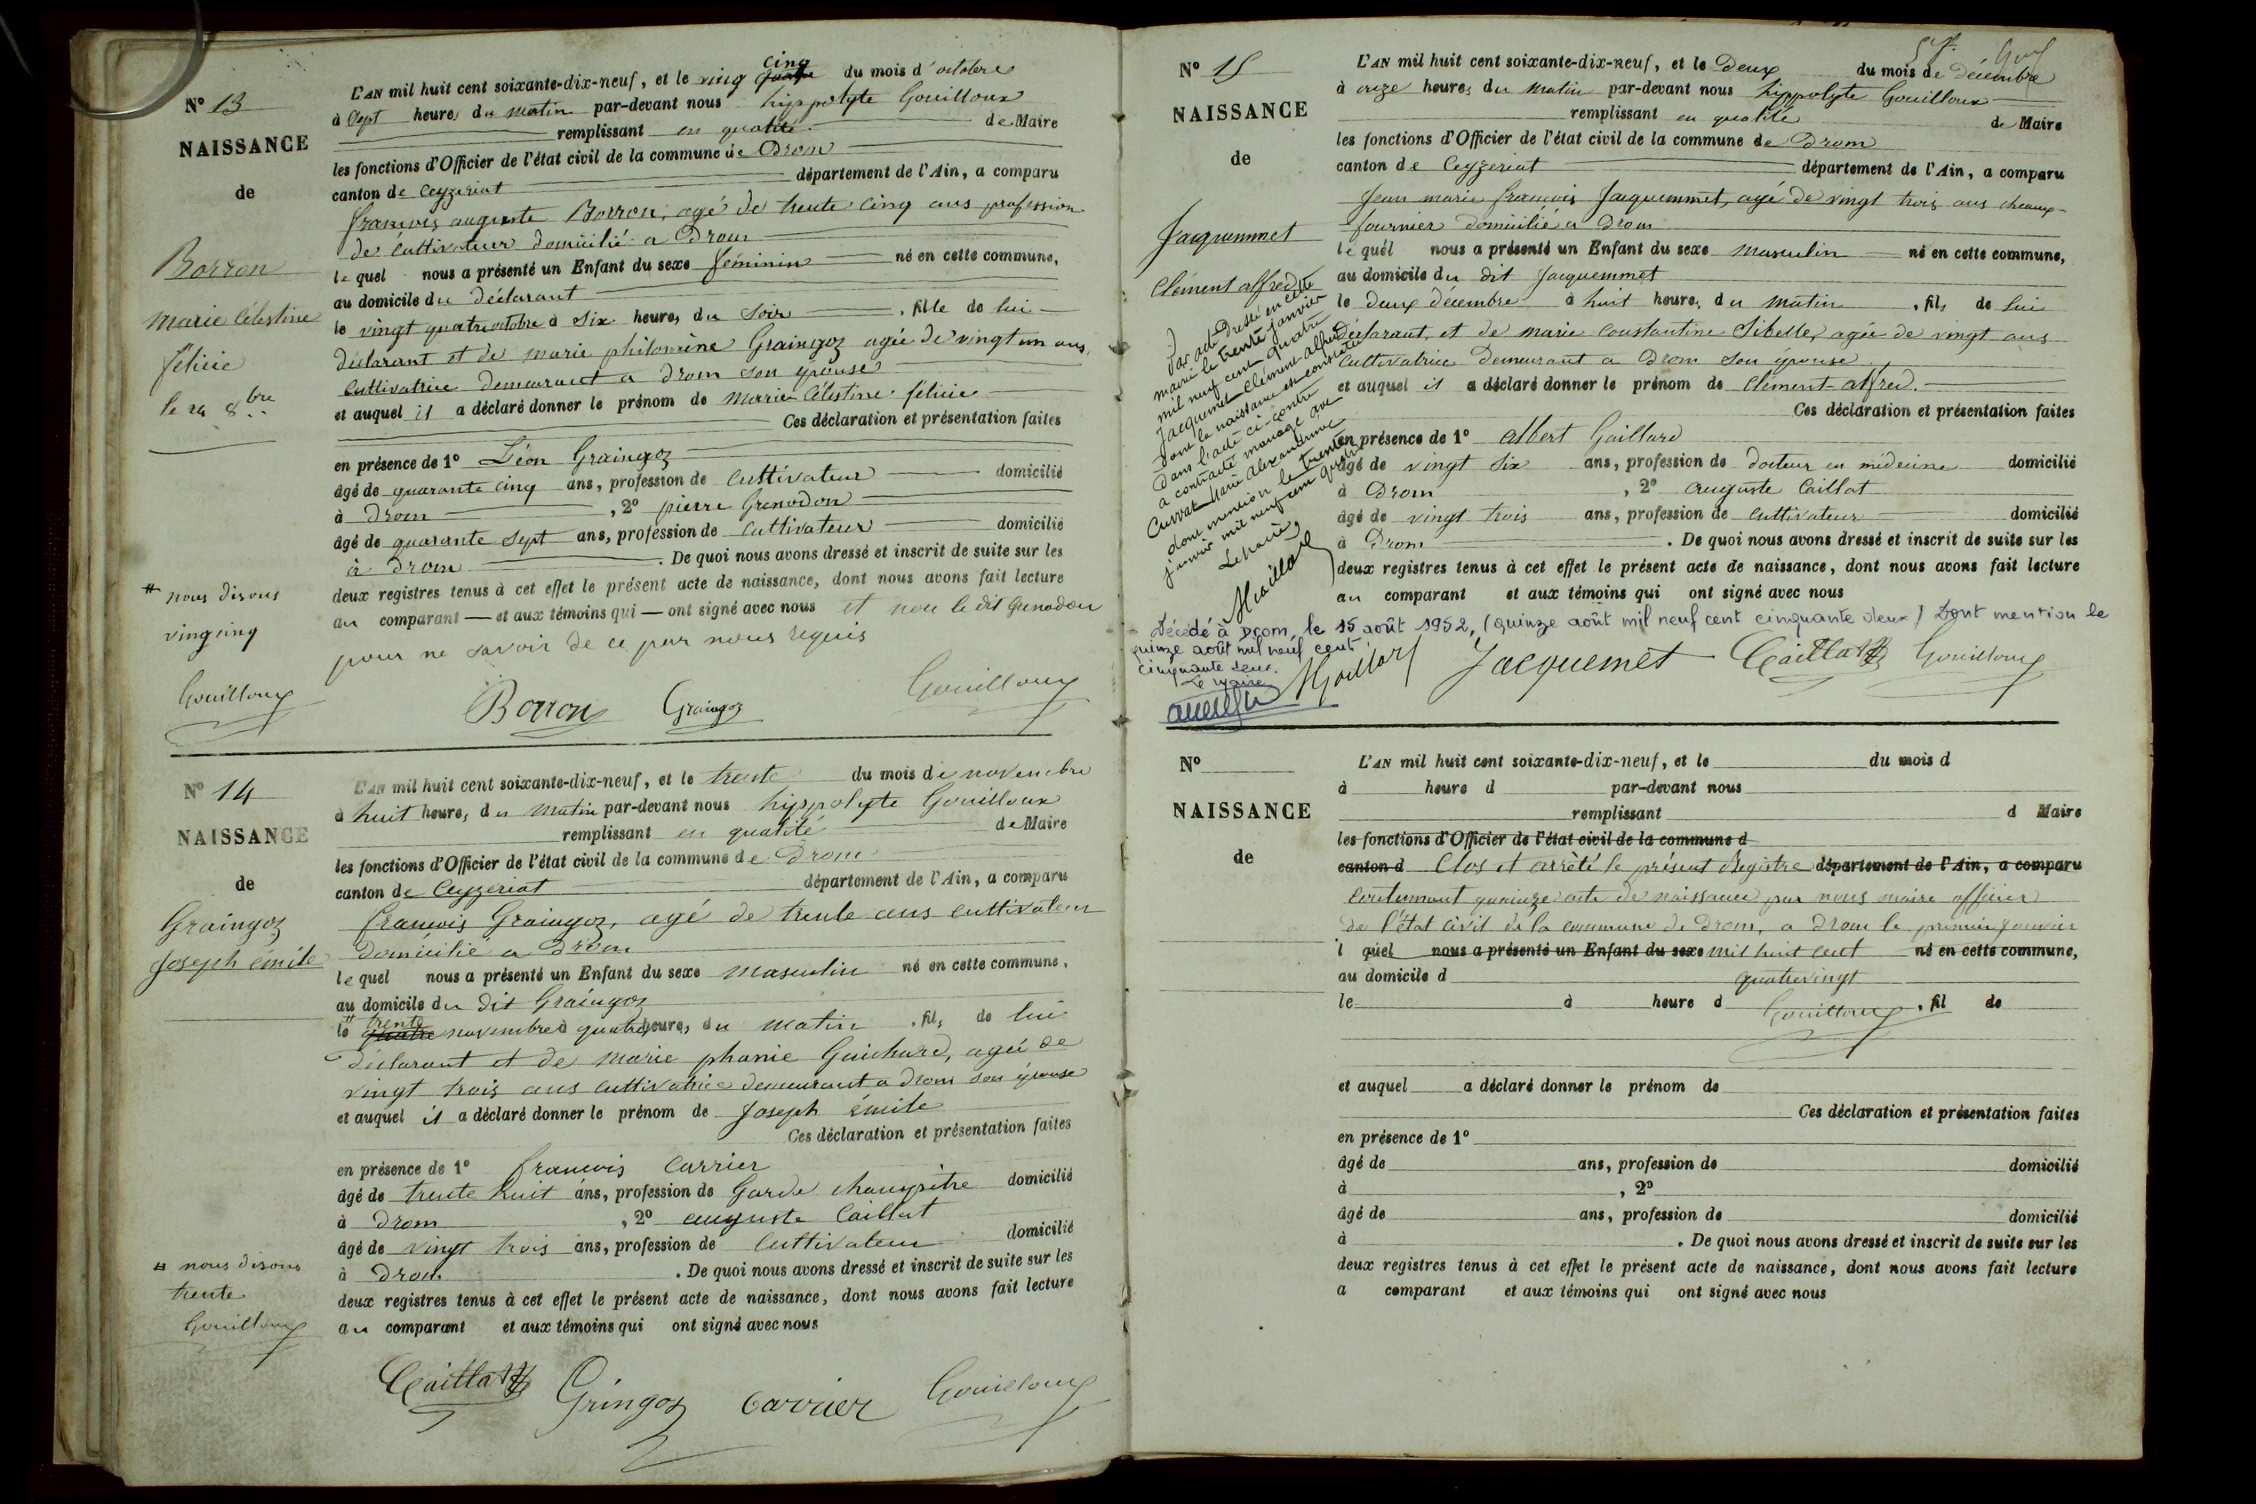 N° 13
NAISSANCE
de
Borron
Marie Célestine
félicie
le 24 8bre
L'AN mil huit cent soixante-dix-neuf, et le ving cinq quatre du mois d'octobre
à Sept heures du matin par-devant nous hyppolyte Gouilloux
remplissant en qualité de Maire
les fonctions d'Officier de l'état civil de la commune de Drom
canton de Ceyzeriat département de l'Ain, a comparu
françois auguste Borron, agé de trente cinq ans profession
de cultivateur domicilié a Drom
lequel nous a présenté un Enfant du sexe féminin né en cette commune,
au domicile du déclarant
le vingt quatre octobre à Six heures du Soir, fille de lui
déclarant et de marie philomène Graingoz agée de vingt un ans,
cultivatrice demeurant a drom son épouse
et auquel il a déclaré donner le prénom de Marie Célestine félicie
Ces déclaration et présentation faites
en présence de 1° Léon Graingoz
âgé de quarante cinq ans, profession de Cultivateur domicilié
à Drom, 2° pierre Grenodon
âgé de quarante sept ans, profession de Cultivateur domicilié
à drom. De quoi nous avons dressé et inscrit de suite sur les
deux registres tenus à cet effet le présent acte de naissance, dont nous avons fait lecture
au comparant et aux témoins qui ont signé avec nous et non le dit Grenodon
pour ne savoir de ce par nous requis
# nous disons
ving cinq
Gouilloux
Borron Graingoz Gouilloux
N° 14
NAISSANCE
de
Graingoz
Joseph émile
L'AN mil huit cent soixante-dix-neuf, et le trente du mois de novembre
à huit heures, du matin par-devant nous hyppolyte Gouilloux
remplissant en qualité de Maire
les fonctions d'Officier de l'état civil de la commune de Drom
canton de Ceyzeriat département de l'Ain, a comparu
françois Graingoz, agé de trente ans cultivateur
domicilié a Drom
lequel nous a présenté un Enfant du sexe masculin né en cette commune,
au domicile du dit Graingoz
le # trente quatre novembre à quatre heures, du matin, fils de lui
déclarant et de marie phanie Guichard, agée de
vingt trois ans cultivatrice demeurant a drom son épouse
et auquel il a déclaré donner le prénom de Joseph émile
Ces déclaration et présentation faites
en présence de 1° françois Carrier
âgé de trente huit ans, profession de Garde champêtre domicilié
à Drom, 2° auguste Caillat
âgé de vingt trois ans, profession de Cultivateur domicilié
à Drom. De quoi nous avons dressé et inscrit de suite sur les
deux registres tenus à cet effet le présent acte de naissance, dont nous avons fait lecture
au comparant et aux témoins qui ont signé avec nous
# nous disons
trente
Gouilloux
Caillat Gringoz Carrier Gouilloux
N° 15
NAISSANCE
de
Jacquemmet
Clément alfred
L'AN mil huit cent soixante-dix-neuf, et le Deux du mois de décembre
à onze heures du matin par-devant nous hyppolyte Gouilloux
remplissant en qualité de Maire
les fonctions d'Officier de l'état civil de la commune de Drom
canton de Ceyzeriat département de l'Ain, a comparu
Jean marie françois Jacquemmet, agé de vingt trois ans chaux-
fournier domicilié a Drom
lequel nous a présenté un Enfant du sexe masculin né en cette commune,
au domicile du dit Jacquemmet
le deux décembre à huit heures, du matin, fils de lui
déclarant, et de marie Constantine Sibelle, agée de vingt ans
cultivatrice demeurant a Drom son épouse
et auquel il a déclaré donner le prénom de Clément-alfred.
Ces déclaration et présentation faites
en présence de 1° albert Goillard
âgé de vingt Six ans, profession de docteur en médecine domicilié
à Drom, 2° auguste Caillat
âgé de vingt trois ans, profession de cultivateur domicilié
à Drom. De quoi nous avons dressé et inscrit de suite sur les
deux registres tenus à cet effet le présent acte de naissance, dont nous avons fait lecture
au comparant et aux témoins qui ont signé avec nous
Par acte dressé en cette
mairie le trente janvier
mil neuf cent quatre
Jacquemet Clément alfred
dont la naissance est constatée
dans l'acte ci-contre
a contracté mariage avec
Curvat Marie Alexandrine
dont mention le trente
janvier mil neuf cent quatre
Le maire,
Décédé à Drom, le 15 août 1952, (quinze août mil neuf cent cinquante deux) Dont mention le
quinze août mil neuf cent
cinquante deux.
Le Maire
AGoillard Jacquemet Caillat Gouilloux
N°
NAISSANCE
de
L'AN mil huit cent soixante-dix-neuf, et le du mois d
à heure d par-devant nous
remplissant d Maire
les fonctions d'Officier de l'état civil de la commune d
canton d Clos et arrêté le présent Registre département de l'Ain, a comparu
Contenant quinze acte de naissance par nous maire officier
de l'état civil de la commune de Drom, a Drom le premier janvier
l quel nous a présenté un Enfant du sexe mil huit cent né en cette commune,
au domicile d quatrevingt
le à heure d Gouilloux, fil de
et auquel a déclaré donner le prénom de
Ces déclaration et présentation faites
en présence de 1°
âgé de ans, profession de domicilié
à , 2°
âgé de ans, profession de domicilié
à . De quoi nous avons dressé et inscrit de suite sur les
deux registres tenus à cet effet le présent acte de naissance, dont nous avons fait lecture
a comparant et aux témoins qui ont signé avec nous